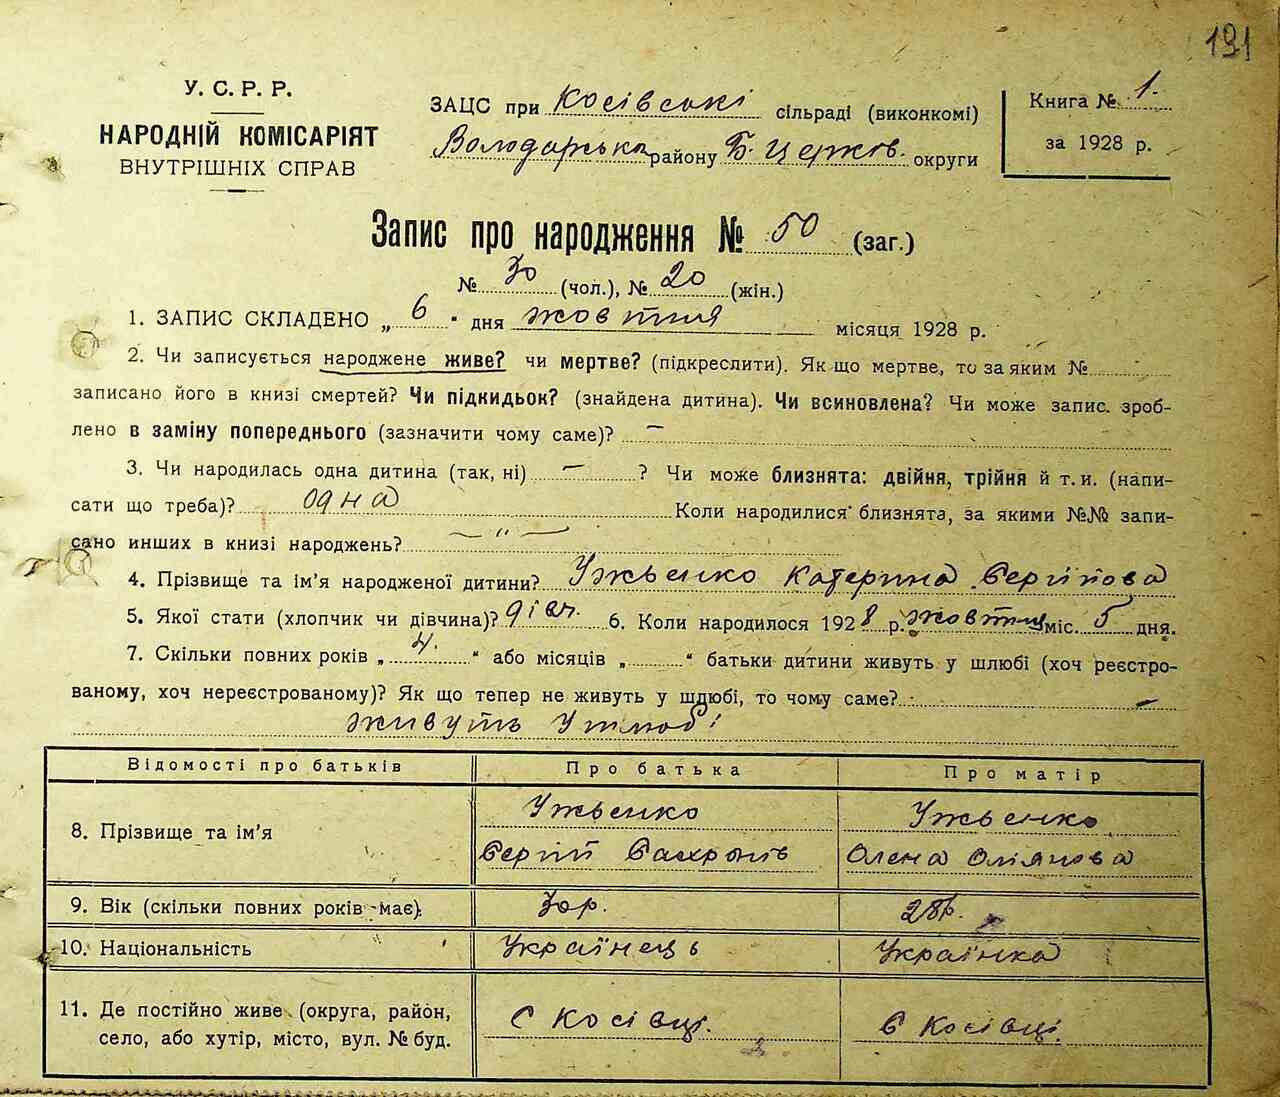 191
У. С. Р. Р.
НАРОДНІЙ КОМІСАРІЯТ
ВНУТРІШНІХ СПРАВ
ЗАЦС при Косівські сільраді (виконкомі)
Володарська району Б. Церков. округи
Книга № 1.
за 1928 р.
Запис про народження № 50 (заг.)
№ 30 (чол.), № 20 (жін.)
1. ЗАПИС СКЛАДЕНО „ 6 " дня жовтня місяця 1928 р.
2. Чи записується народжене живе? чи мертве? (підкреслити). Як що мертве, то за яким №
записано його в книзі смертей? Чи підкидьок? (знайдена дитина). Чи всиновлена? Чи може запис. зроб-
лено в заміну попереднього (зазначити чому саме)? —
3. Чи народилась одна дитина (так, ні) — ? Чи може близнята: двійня, трійня й т. и. (напи-
сати що треба)? одна Коли народилися близнята, за якими №№ запи-
сано инших в книзі народжень? — " —
4. Прізвище та ім'я народженої дитини? Ужвенко Катерина Сергійова
5. Якої стати (хлопчик чи дівчина)? дівч. 6. Коли народилося 1928 р. жовтня міс. 5 дня.
7. Скільки повних років „ 4. " або місяців „ " батьки дитини живуть у шлюбі (хоч реєстро-
ваному, хоч нереєстрованому)? Як що тепер не живуть у шлюбі, то чому саме? —
живуть у шлюбі
Відомості про батьків Про батька Про матір
8. Прізвище та ім'я Ужвенко Ужвенко
Сергій Олена
9. Вік (скільки повних років має): 30р. 28р.
10. Національність Українець Українка
11. Де постійно живе (округа, район, С Косівці. С Косівці.
село, або хутір, місто, вул. № буд.